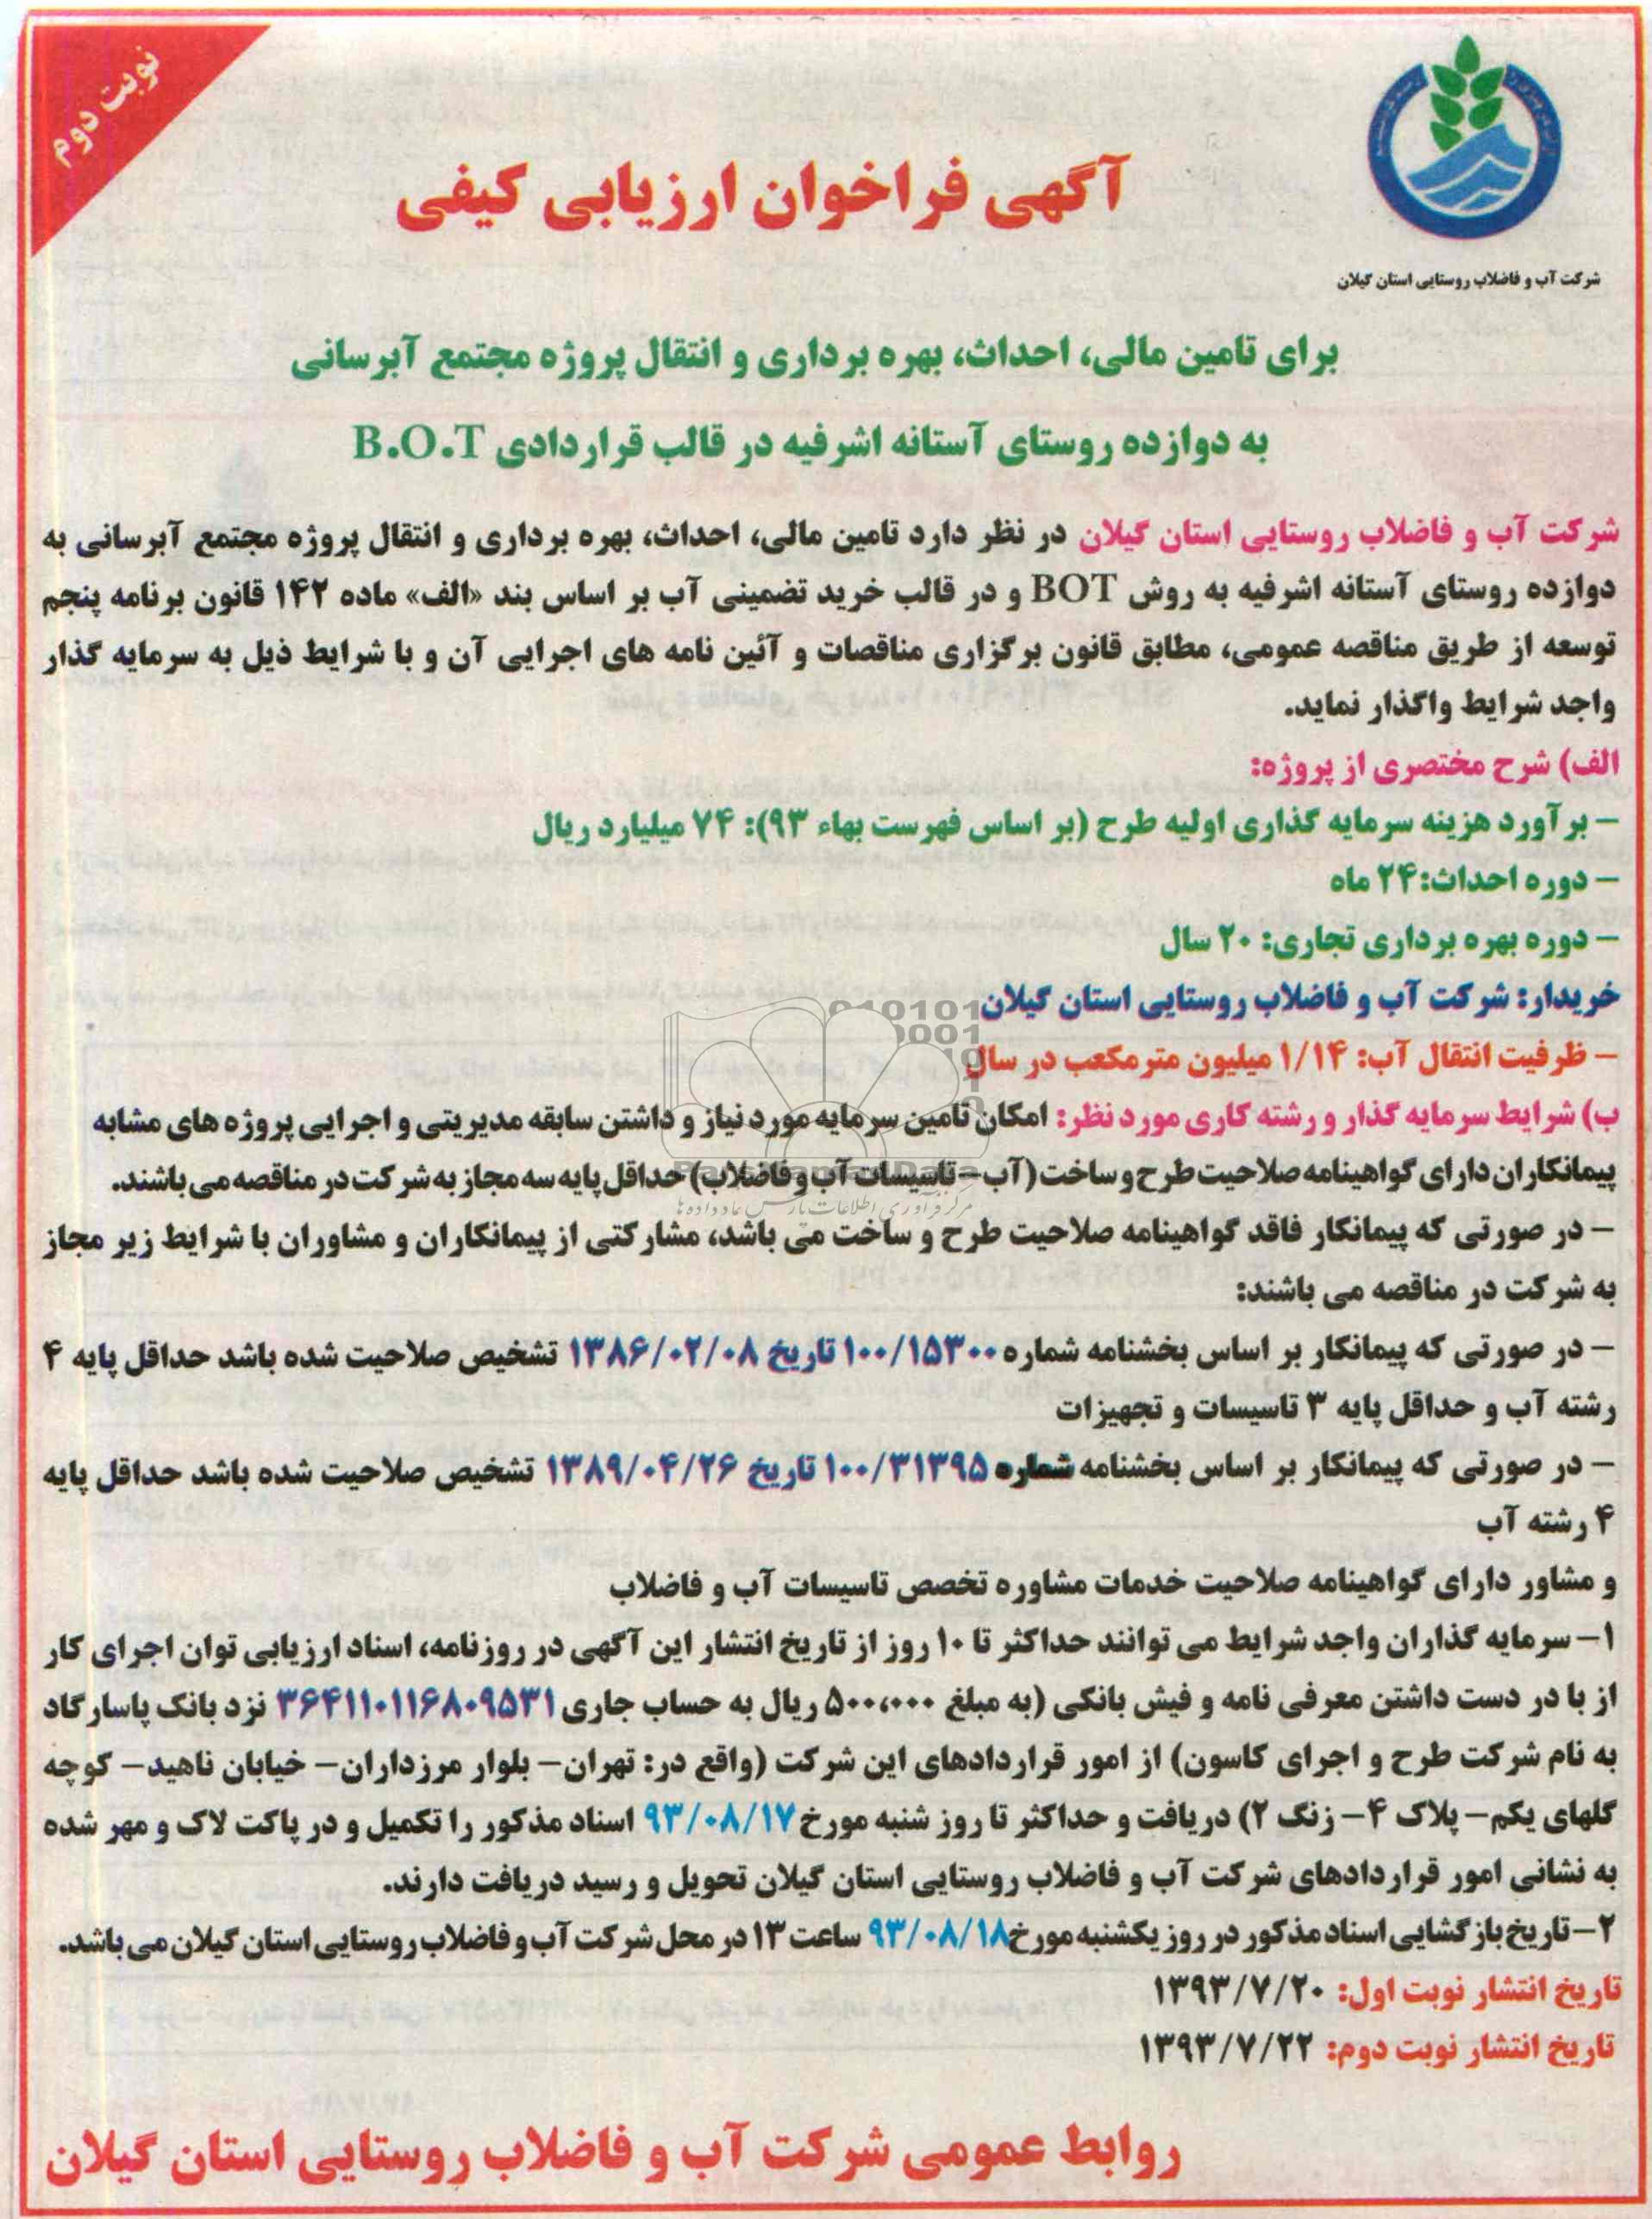 نوبت دوم
شرکت آب و فاضلاب روستایی استان گیلان
آگهی فراخوان ارزیابی کیفی
برای تامین مالی، احداث، بهره برداری و انتقال پروژه مجتمع آبرسانی
به دوازده روستای آستانه اشرفیه در قالب قراردادی B.O.T
شرکت آب و فاضلاب روستایی استان گیلان در نظر دارد تامین مالی، احداث، بهره برداری و انتقال پروژه مجتمع آبرسانی به
دوازده روستای آستانه اشرفیه به روش BOT و در قالب خرید تضمینی آب بر اساس بند «الف» ماده ۱۴۲ قانون برنامه پنجم
توسعه از طریق مناقصه عمومی، مطابق قانون برگزاری مناقصات و آئین نامه های اجرایی آن و با شرایط ذیل به سرمایه گذار
واجد شرایط واگذار نماید.
الف) شرح مختصری از پروژه:
- برآورد هزینه سرمایه گذاری اولیه طرح (بر اساس فهرست بهاء ۹۳): ۷۴ میلیارد ریال
- دوره احداث: ۲۴ ماه
- دوره بهره برداری تجاری: ۲۰ سال
خریدار: شرکت آب و فاضلاب روستایی استان گیلان
- ظرفیت انتقال آب: ۱/۱۴ میلیون مترمکعب در سال
ب) شرایط سرمایه گذار و رشته کاری مورد نظر: امکان تامین سرمایه مورد نیاز و داشتن سابقه مدیریتی و اجرایی پروژه های مشابه
پیمانکاران دارای گواهینامه صلاحیت طرح و ساخت (آب – تاسیسات آب و فاضلاب) حداقل پایه سه مجاز به شرکت در مناقصه می باشند.
مرکز فرآوری اطلاعات پارس نماد داده ها
- در صورتی که پیمانکار فاقد گواهینامه صلاحیت طرح و ساخت می باشد، مشارکتی از پیمانکاران و مشاوران با شرایط زیر مجاز
به شرکت در مناقصه می باشند:
- در صورتی که پیمانکار بر اساس بخشنامه شماره ۱۰۰/۱۵۳۰۰ تاریخ ۱۳۸۶/۰۲/۰۸ تشخیص صلاحیت شده باشد حداقل پایه ۴
رشته آب و حداقل پایه ۳ تاسیسات و تجهیزات
- در صورتی که پیمانکار بر اساس بخشنامه شماره ۱۰۰/۳۱۳۹۵ تاریخ ۱۳۸۹/۰۴/۲۶ تشخیص صلاحیت شده باشد حداقل پایه
۴ رشته آب
و مشاور دارای گواهینامه صلاحیت خدمات مشاوره تخصص تاسیسات آب و فاضلاب
۱- سرمایه گذاران واجد شرایط می توانند حداکثر تا ۱۰ روز از تاریخ انتشار این آگهی در روزنامه، اسناد ارزیابی توان اجرای کار
از با در دست داشتن معرفی نامه و فیش بانکی (به مبلغ ۵۰۰،۰۰۰ ریال به حساب جاری ۳۶۴۱۱۰۱۱۶۸۰۹۵۳۱ نزد بانک پاسارگاد
به نام شرکت طرح و اجرای کاسون) از امور قراردادهای این شرکت (واقع در: تهران- بلوار مرزداران- خیابان ناهید- کوچه
گلهای یکم- پلاک ۴- زنگ ۲) دریافت و حداکثر تا روز شنبه مورخ ۹۳/۰۸/۱۷ اسناد مذکور را تکمیل و در پاکت لاک و مهر شده
به نشانی امور قراردادهای شرکت آب و فاضلاب روستایی استان گیلان تحویل و رسید دریافت دارند.
۲- تاریخ بازگشایی اسناد مذکور در روز یکشنبه مورخ ۹۳/۰۸/۱۸ ساعت ۱۳ در محل شرکت آب و فاضلاب روستایی استان گیلان می باشد.
تاریخ انتشار نوبت اول: ۱۳۹۳/۷/۲۰
تاریخ انتشار نوبت دوم: ۱۳۹۳/۷/۲۲
روابط عمومی شرکت آب و فاضلاب روستایی استان گیلان